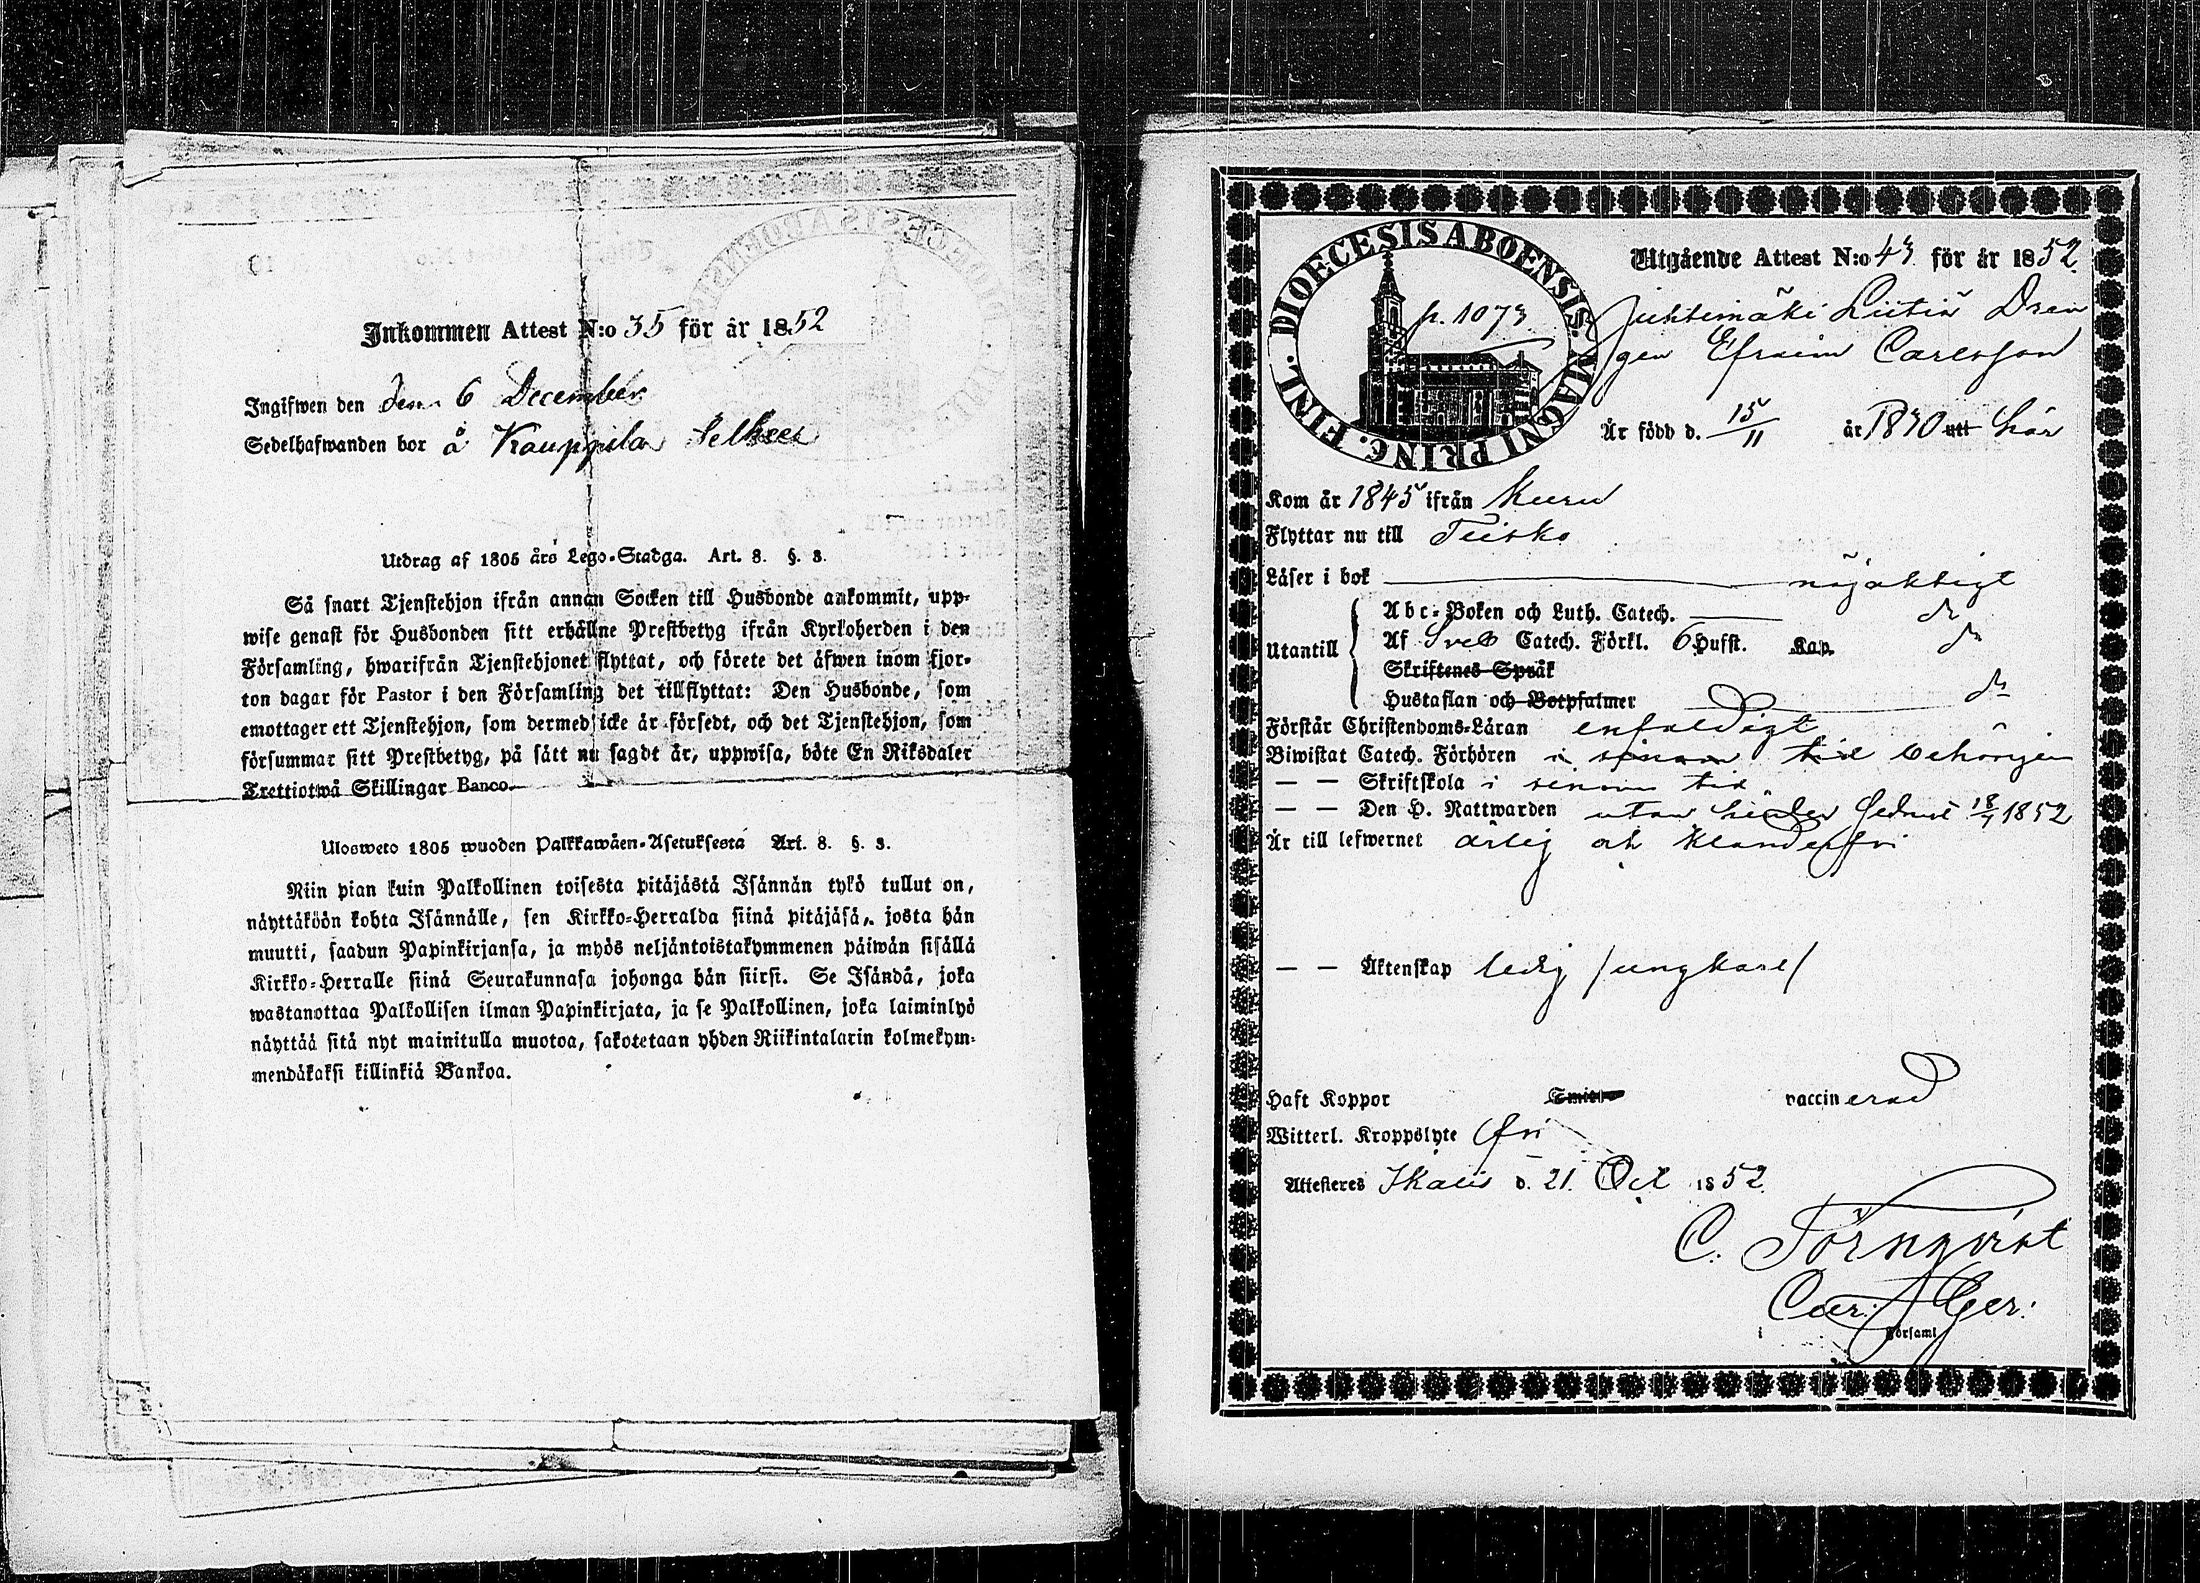 Inkommen Attest N:o 35 för år 1852
Ingifwen den den 6 December
Sedelhafwanden bor å Kauppila Selkee
Utdrag af 1805 års Lego-Stadga. Art. 8. §. 3.
Så snart Tjenstehjon ifrån annan Socken till Husbonde ankommit, upp-
wise genast för Husbonden sitt erhållne Prestbetyg ifrån Kyrkoherden i den
Församling, hwarifrån Tjenstehjonet flyttat, och förete det äfwen inom fjor-
ton dagar för Pastor i den Församling det tillflyttat: Den Husbonde, som
emottager ett Tjenstehjon, som dermed icke är försedt, och det Tjenstehjon, som
försummar sitt Prestbetyg, på sätt nu sagdt är, uppwisa, böte En Riksdaler
Trettiotwå Skillingar Banco.
Ulosweto 1805 wuoden Palkkawäen-Asetuksesta Art. 8. §. 3.
Niin pian kuin Palkollinen toisesta pitäjästä Isännän tykö tullut on,
näyttäköön kohta Isännälle, sen Kirkko-Herralda siinä pitäjäsä, josta hän
muutti, saadun Papinkirjansa, ja myös neljäntoistakymmenen päiwän sisällä
Kirkko-Herralle siinä Seurakunnasa johonga hän siirsi. Se Isändä, joka
wastanottaa Palkollisen ilman Papinkirjata, ja se Palkollinen, joka laiminlyö
näyttää sitä nyt mainitulla muotoa, sakotetaan yhden Riikintalarin kolmekym-
mendäkaksi killinkiä Bankoa.
DIOECESIS ABOENSIS. MAGNI PRINC. FINL.
p. 1073
Utgående Attest N:o 43 för år 1852
Juhtimäki Liitiä Drän
gen Efraim Carlsson
Är född d. 15/11 år 1830 utt här
Kom år 1845 ifrån Kuru
Flyttar nu till Teisko
Läser i bok nöjaktigt
Utantill
Abc-Boken och Luth. Catech. do
Af Sveb Catech. Förkl. 6 Hufst. Kap. do
Skriftenes Språk
Hustaflan och Botpsalmer do
Förstår Christendoms-Läran enfaldigt
Biwistat Catech. Förhören i sinom tid behörigen
— — Skriftskola i sinom tid
— — Den H. Nattwarden utan hinder sednast 18/7 1852
Är till lefwernet ärlig och klanderfri
— — Äktenskap ledig /ungkarl/
Haft Koppor Smitt vaccinerad
Witterl. Kroppslyte fri
Attesteres Ikalis d. 21. Oct 1852
C. Törnqvist
i Församl